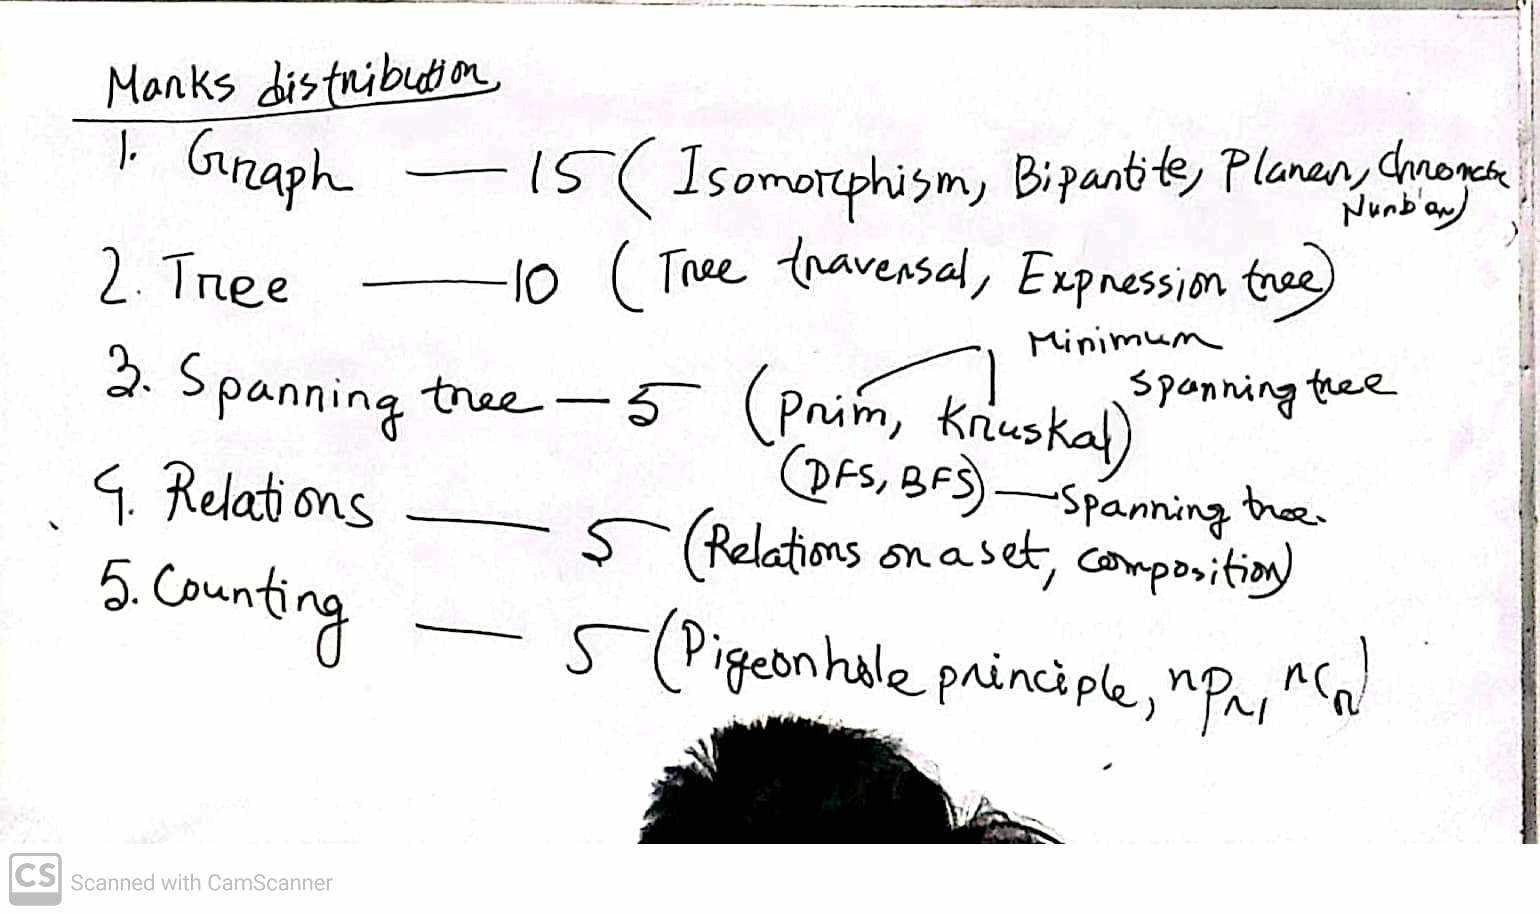 Marks distribution
1. Graph — 15 (Isomorphism, Bipartite, Planar, Chromatic
Number)
2. Tree — 10 (Tree traversal, Expression tree)
Minimum
3. Spanning tree — 5 (Prim, Kruskal) spanning tree
(DFS, BFS) — Spanning tree.
4. Relations — 5 (Relations on a set, composition)
5. Counting — 5 (Pigeonhole principle, nPr, nCr)
CS Scanned with CamScanner